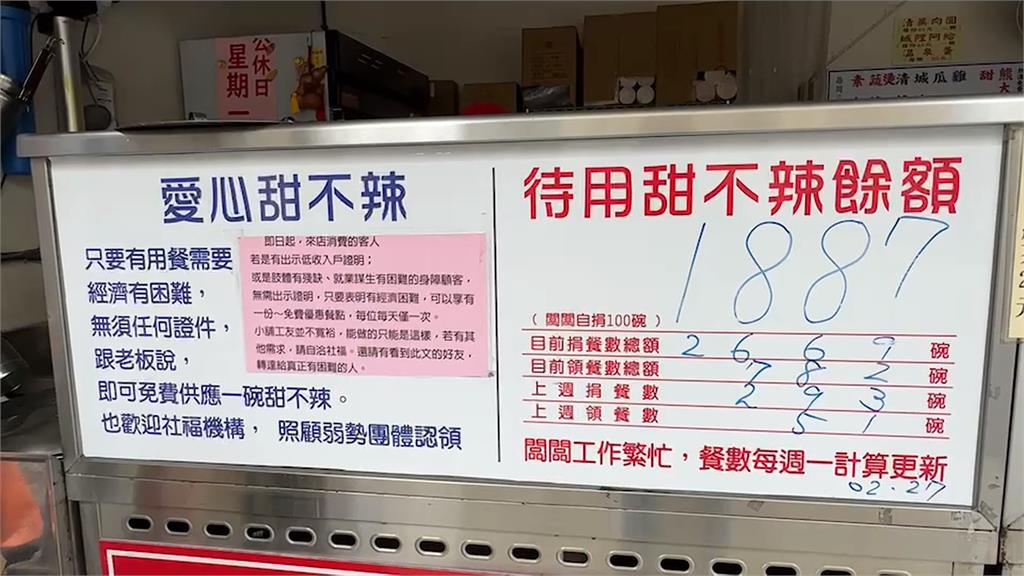 公休日
星期一
清蒸肉圓
溫泉蛋
素蔬燙清城瓜雞 甜熊大
愛心甜不辣
只要有用餐需要
經濟有困難，
無須任何證件，
跟老板說，
即可免費供應一碗甜不辣。
也歡迎社福機構， 照顧弱勢團體認領
即日起，來店消費的客人
若是有出示低收入戶證明；
或是肢體有殘缺、就業謀生有困難的身障顧客，
無需出示證明，只要表明有經濟困難，可以享有
一份~免費優惠餐點，每位每天僅一次。
小舖工友並不寬裕，能做的只能是這樣，若有其
他需求，請自洽社福。還請有看到此文的好友，
轉達給真正有困難的人。
待用甜不辣餘額
1887
（ 闆闆自捐100碗 ）
目前捐餐數總額 2669 碗
目前領餐數總額 782 碗
上週捐餐數 293 碗
上週領餐數 51 碗
闆闆工作繁忙，餐數每週一計算更新
02.27